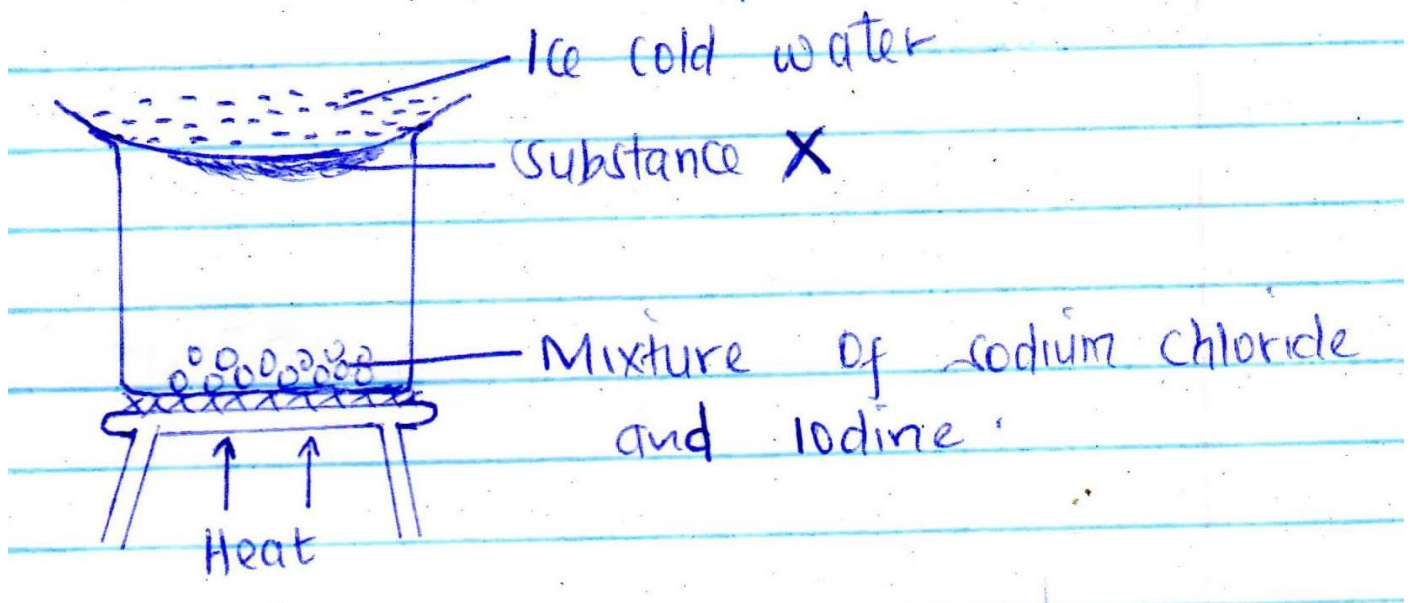 Ice cold water
Substance X
Mixture of sodium chloride
and Iodine.
Heat